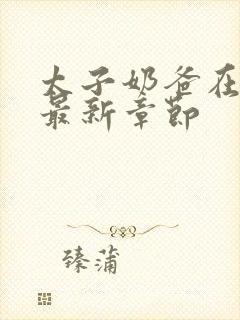 太子奶爸在
最新章节
臻蒲